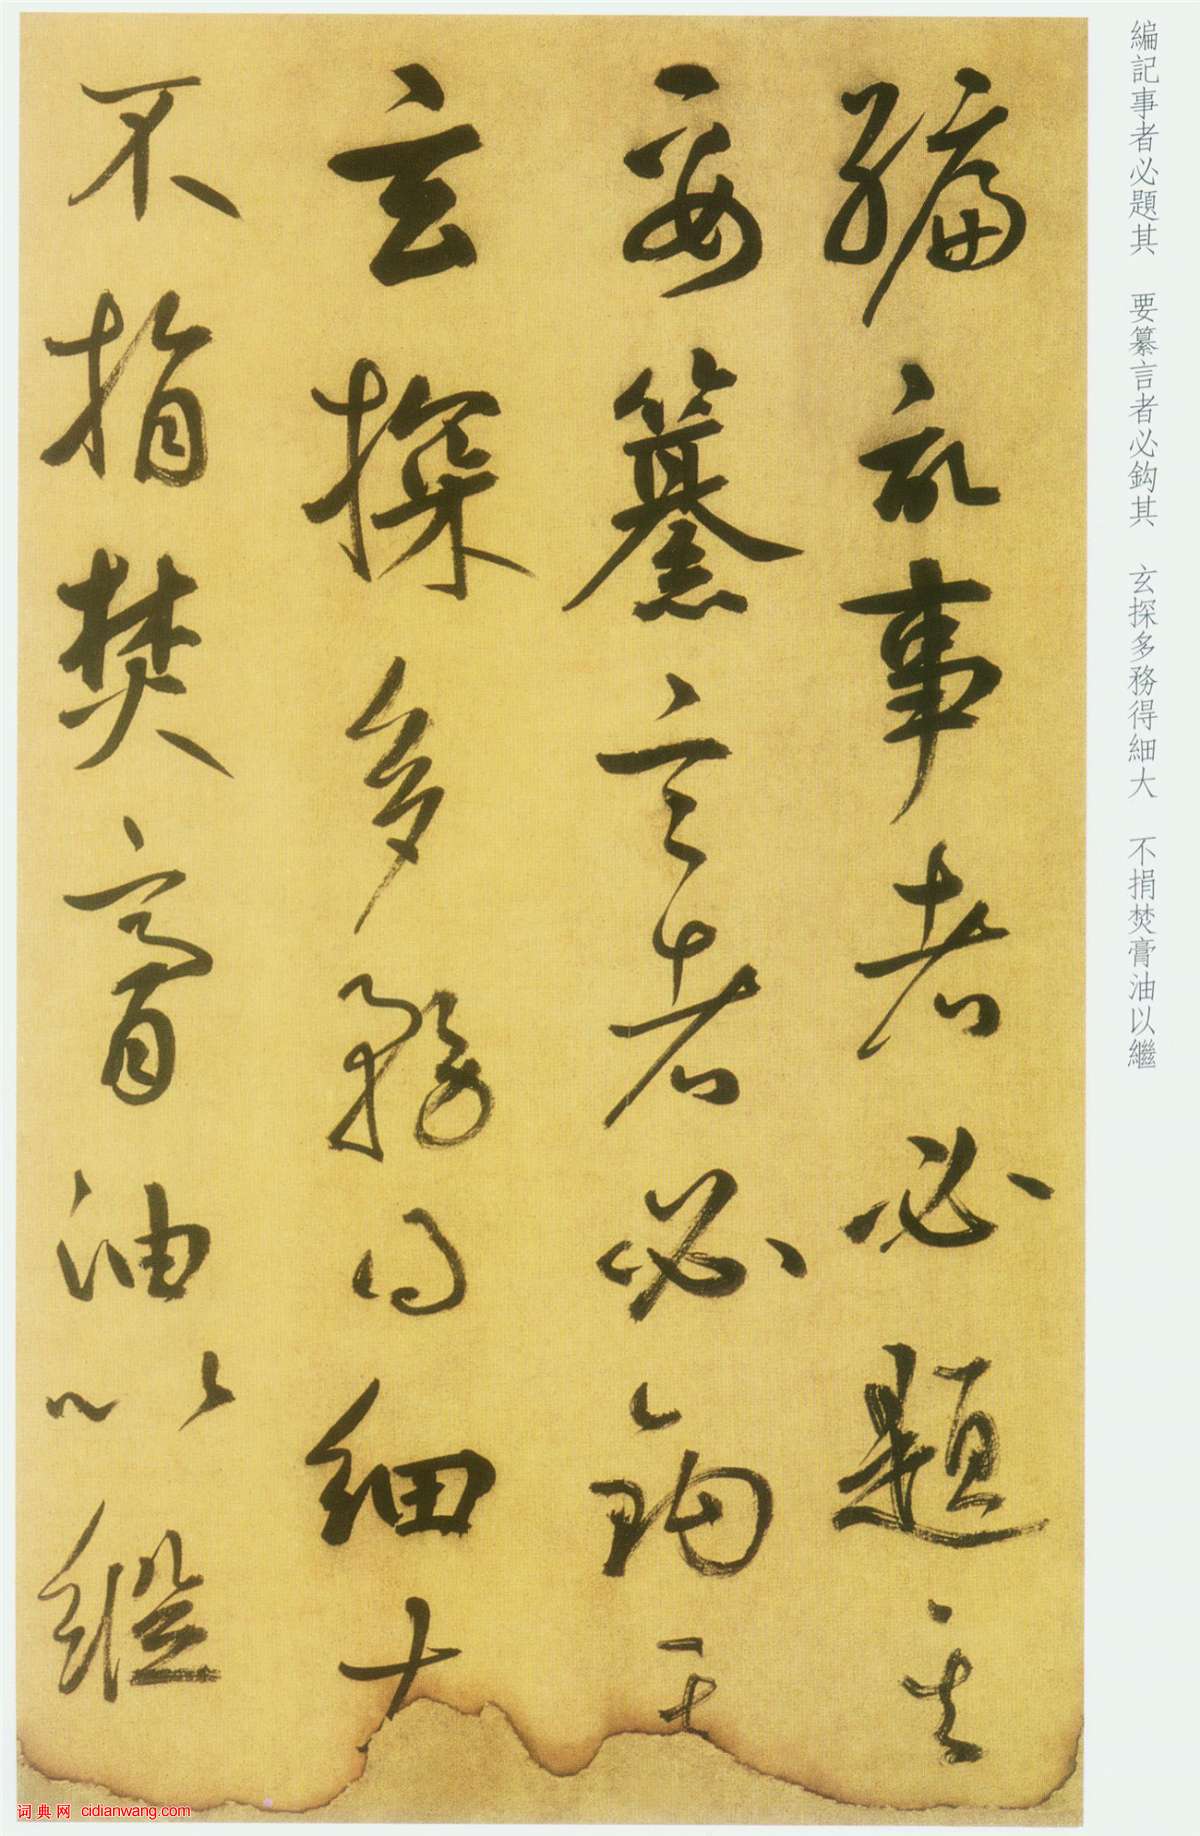 編記事者必題其 要纂言者必鈎其 玄探多務得細大 不捐焚膏油以繼
編記事者必題其
要纂言者必鈎其
玄探多務得細大
不捐焚膏油以繼
词典网 cidianwang.com